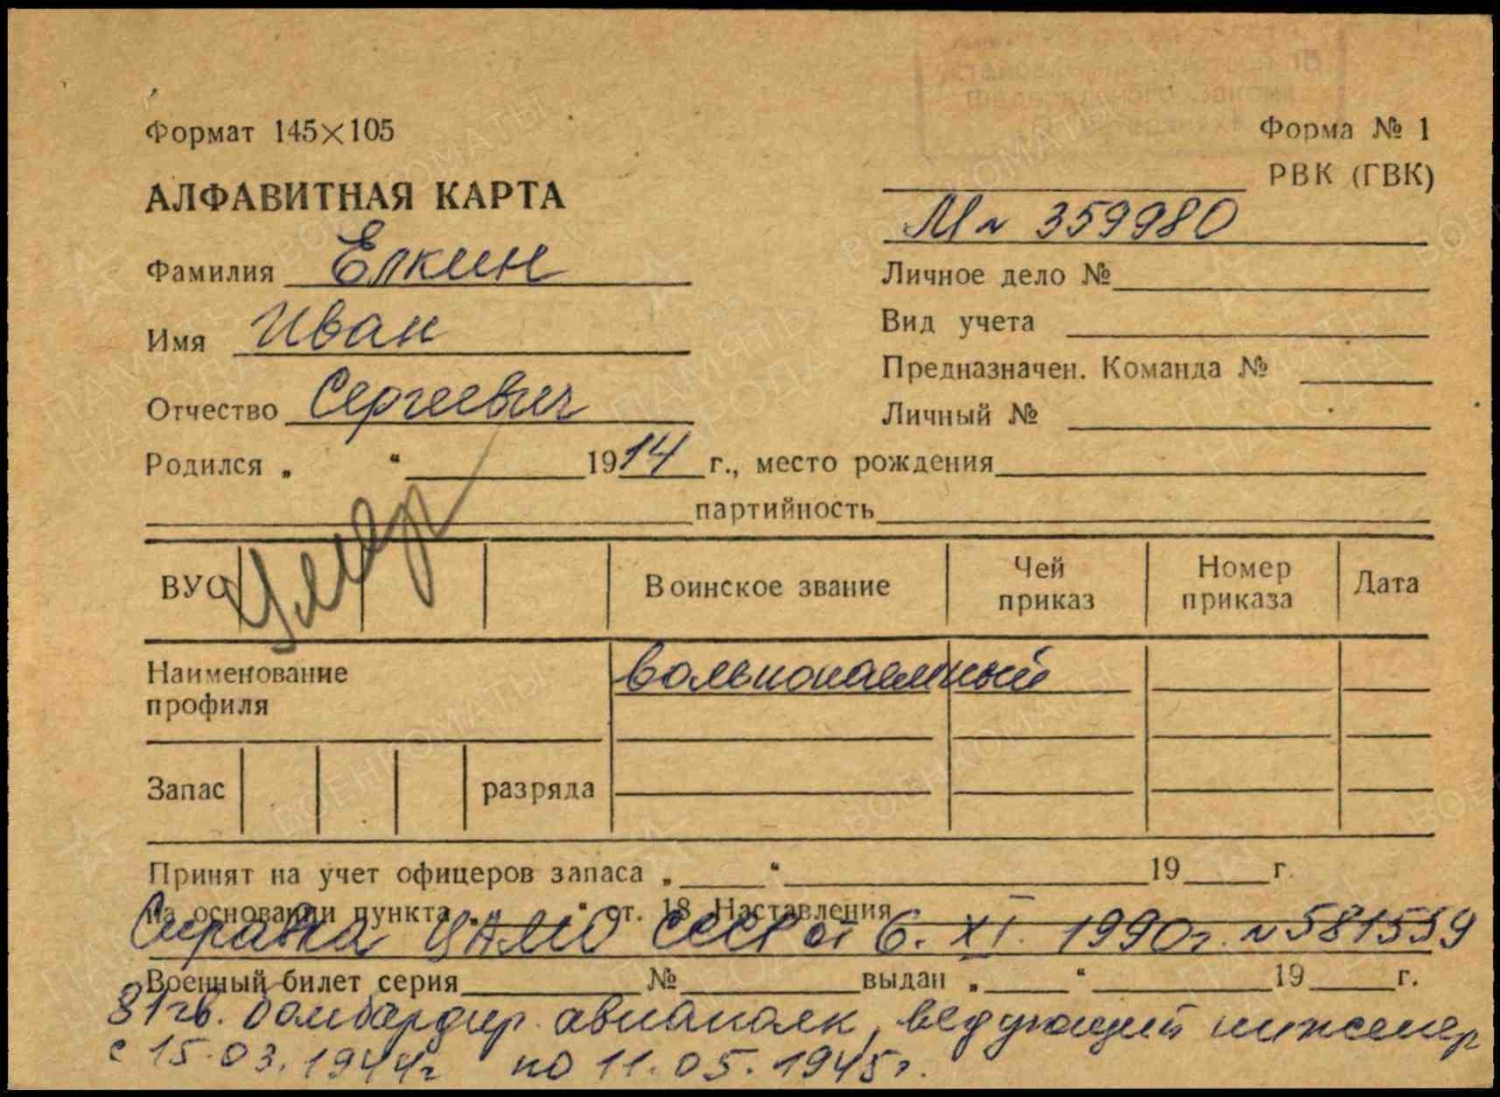 Формат 145×105
Форма № 1
РВК (ГВК)
АЛФАВИТНАЯ КАРТА
М № 359980
Фамилия Елкин
Личное дело №
Имя Иван
Вид учета
Предназначен. Команда №
Отчество Сергеевич
Личный №
Родился „ “ 1914 г., место рождения
партийность
Умер
ВУС Воинское звание Чей приказ Номер приказа Дата
Наименование профиля
вольнонаемный
Запас разряда
Принят на учет офицеров запаса „ “ 19 г.
на основании пункта „ “ ст. 18 Наставления
Справка ЦАМО СССР от 6. XI. 1990г. № 581559
Военный билет серия № выдан „ “ 19 г.
81 гв. бомбардир. авиаполк, ведущий инженер
с 15.03.1944г по 11.05.1945г.
ПАМЯТЬ НАРОДА
ВОЕНКОМАТЫ